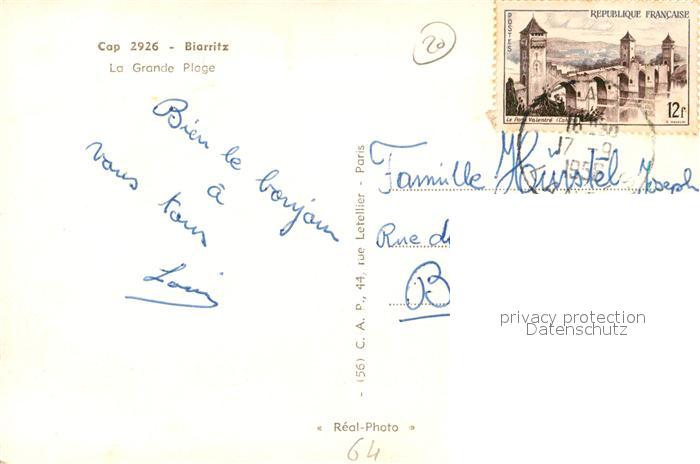 Cap 2926 - Biarritz
La Grande Plage
20
REPUBLIQUE FRANÇAISE
POSTES
Le Pont Valentré
12F
17 -9
1956
Bien le bonjour
à
vous tous
Louis
Famille Joseph
Rue d
B
- (56) C. A. P., 44, rue Letellier - Paris
privacy protection
Datenschutz
« Réal-Photo »
64